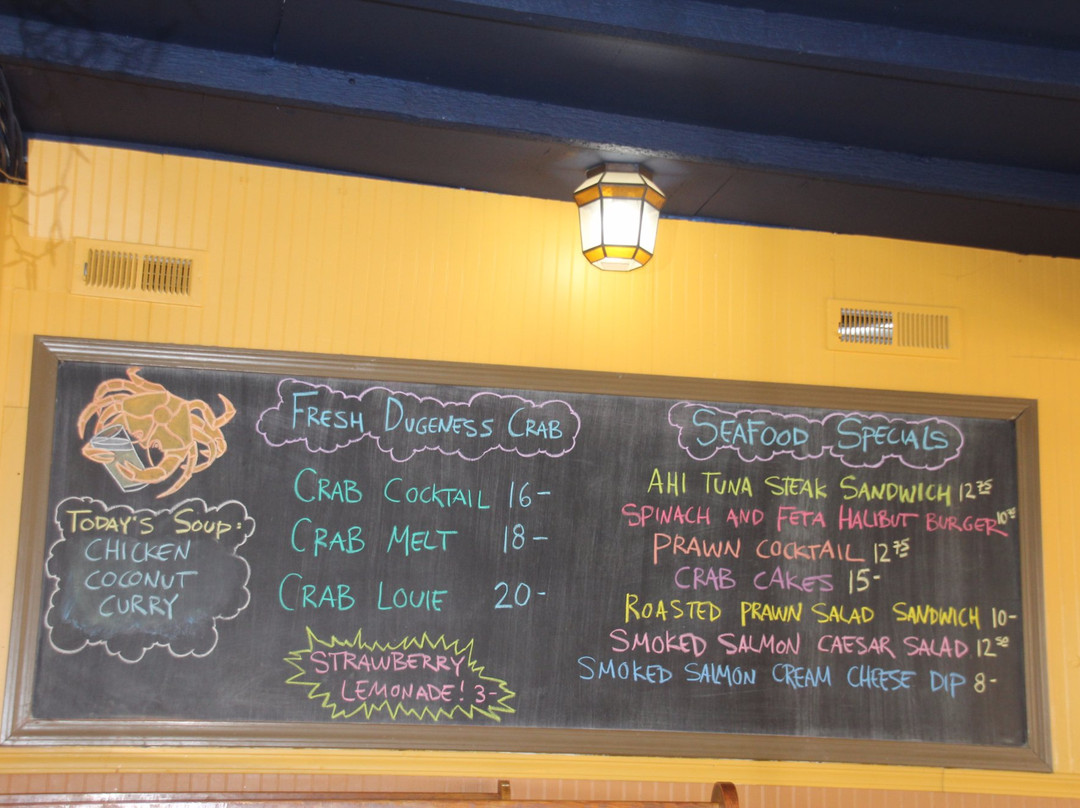 TODAY'S SOUP:
CHICKEN
COCONUT
CURRY
FRESH DUGENESS CRAB
CRAB COCKTAIL 16-
CRAB MELT 18-
CRAB LOUIE 20-
STRAWBERRY
LEMONADE! 3-
SEAFOOD SPECIALS
AHI TUNA STEAK SANDWICH 12 75
SPINACH AND FETA HALIBUT BURGER
PRAWN COCKTAIL 12 75
CRAB CAKES 15-
ROASTED PRAWN SALAD SANDWICH 10-
SMOKED SALMON CAESAR SALAD 12 50
SMOKED SALMON CREAM CHEESE DIP 8-